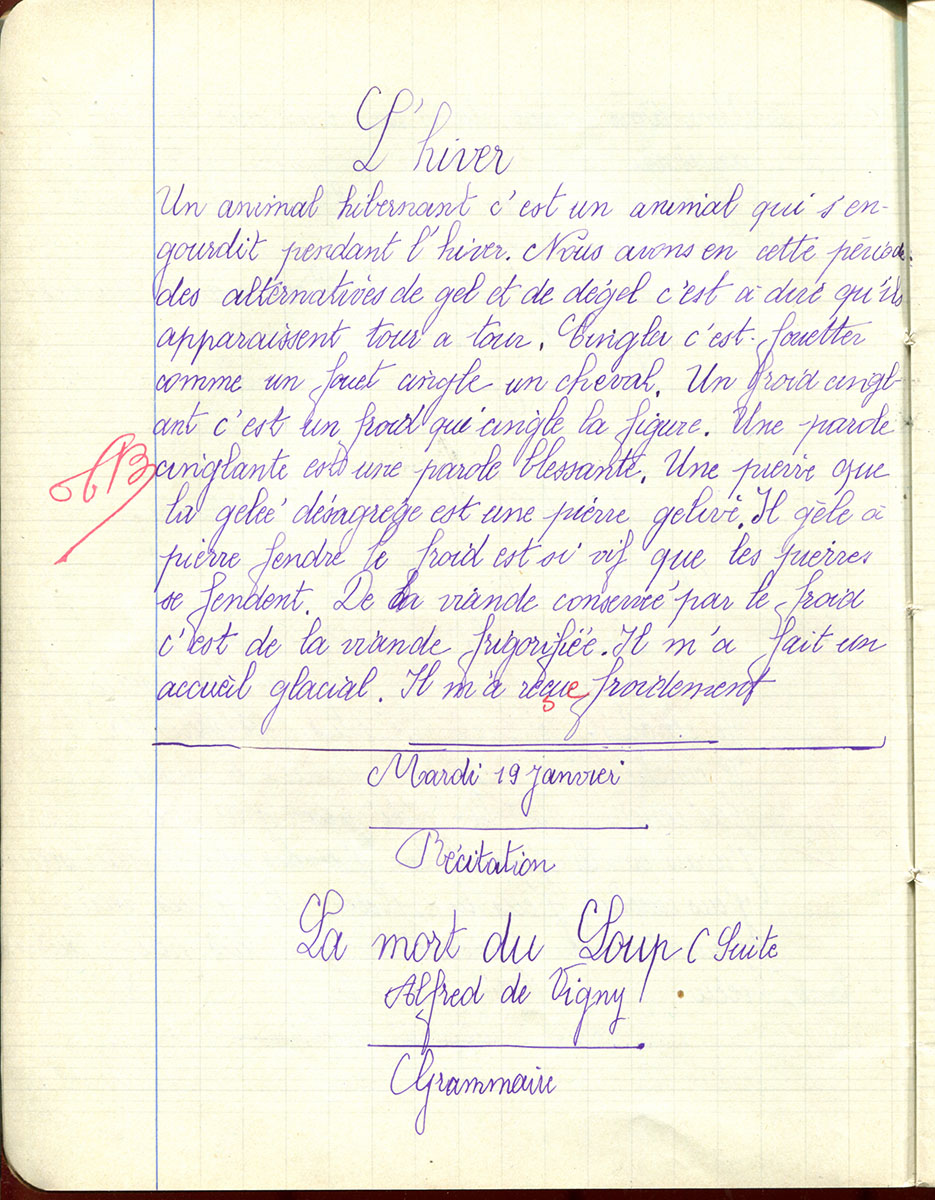 L'hiver
Un animal hibernant c'est un animal qui s'en-
gourdit pendant l'hiver. Nous avons en cette période
des alternatives de gel et de dégel c'est à dire qu'ils
apparaissent tour a tour. Cingler c'est fouetter
comme un fouet cingle un cheval. Un froid cingl-
ant c'est un froid qui cingle la figure. Une parole
cinglante est une parole blessante. Une pierre que
la gelée désagrége est une pierre gelive. Il gèle à
pierre fendre le froid est si vif que les pierres
se fendent. De la viande conservée par le froid
c'est de la viande frigorifiée. Il m'a fait un
accueil glacial. Il m'a reçue froidement
TB
Mardi 19 janvier
Récitation
La mort du Loup (Suite
Alfred de Vigny
Grammaire